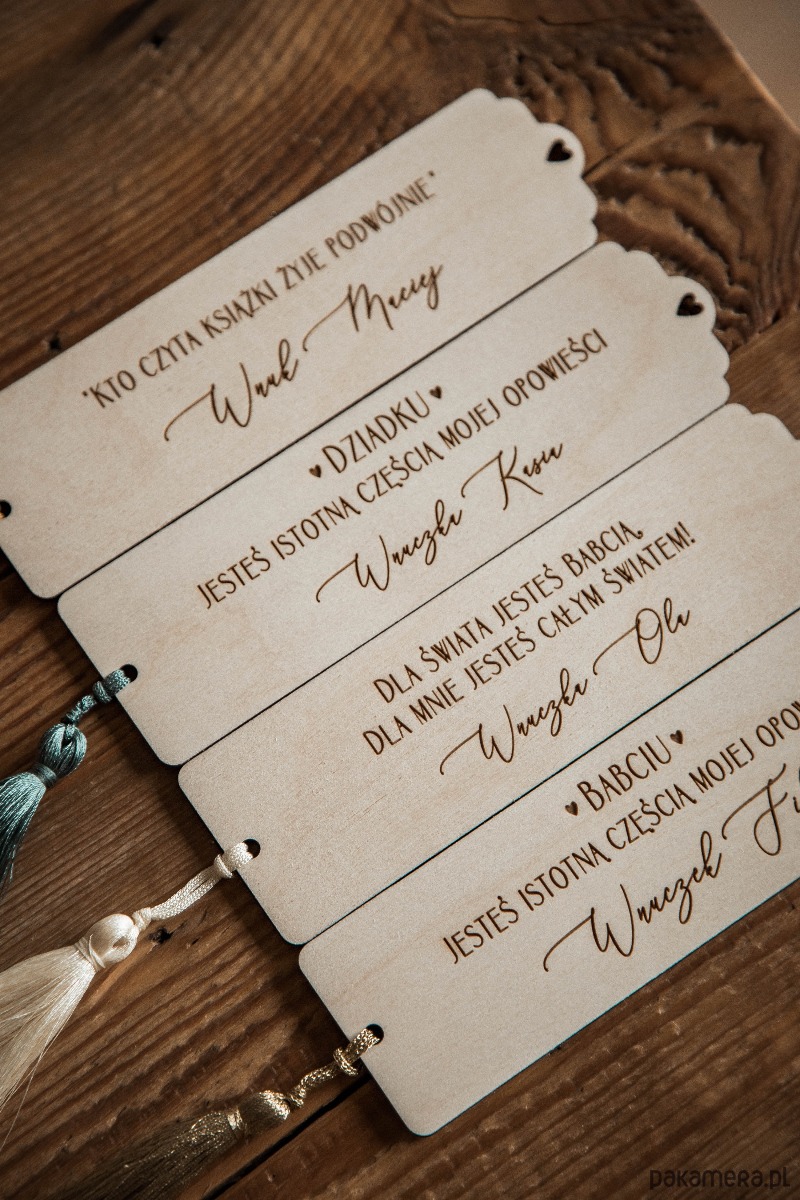 "KTO CZYTA KSIĄŻKI ŻYJE PODWÓJNIE"
Wnuk Maciej
DZIADKU
JESTEŚ ISTOTNĄ CZĘŚCIĄ MOJEJ OPOWIEŚCI
Wnuczka Kasia
DLA ŚWIATA JESTEŚ BABCIĄ,
DLA MNIE JESTEŚ CAŁYM ŚWIATEM!
Wnuczka Ola
BABCIU
JESTEŚ ISTOTNĄ CZĘŚCIĄ MOJEJ
Wnuczek
pakamera.pl